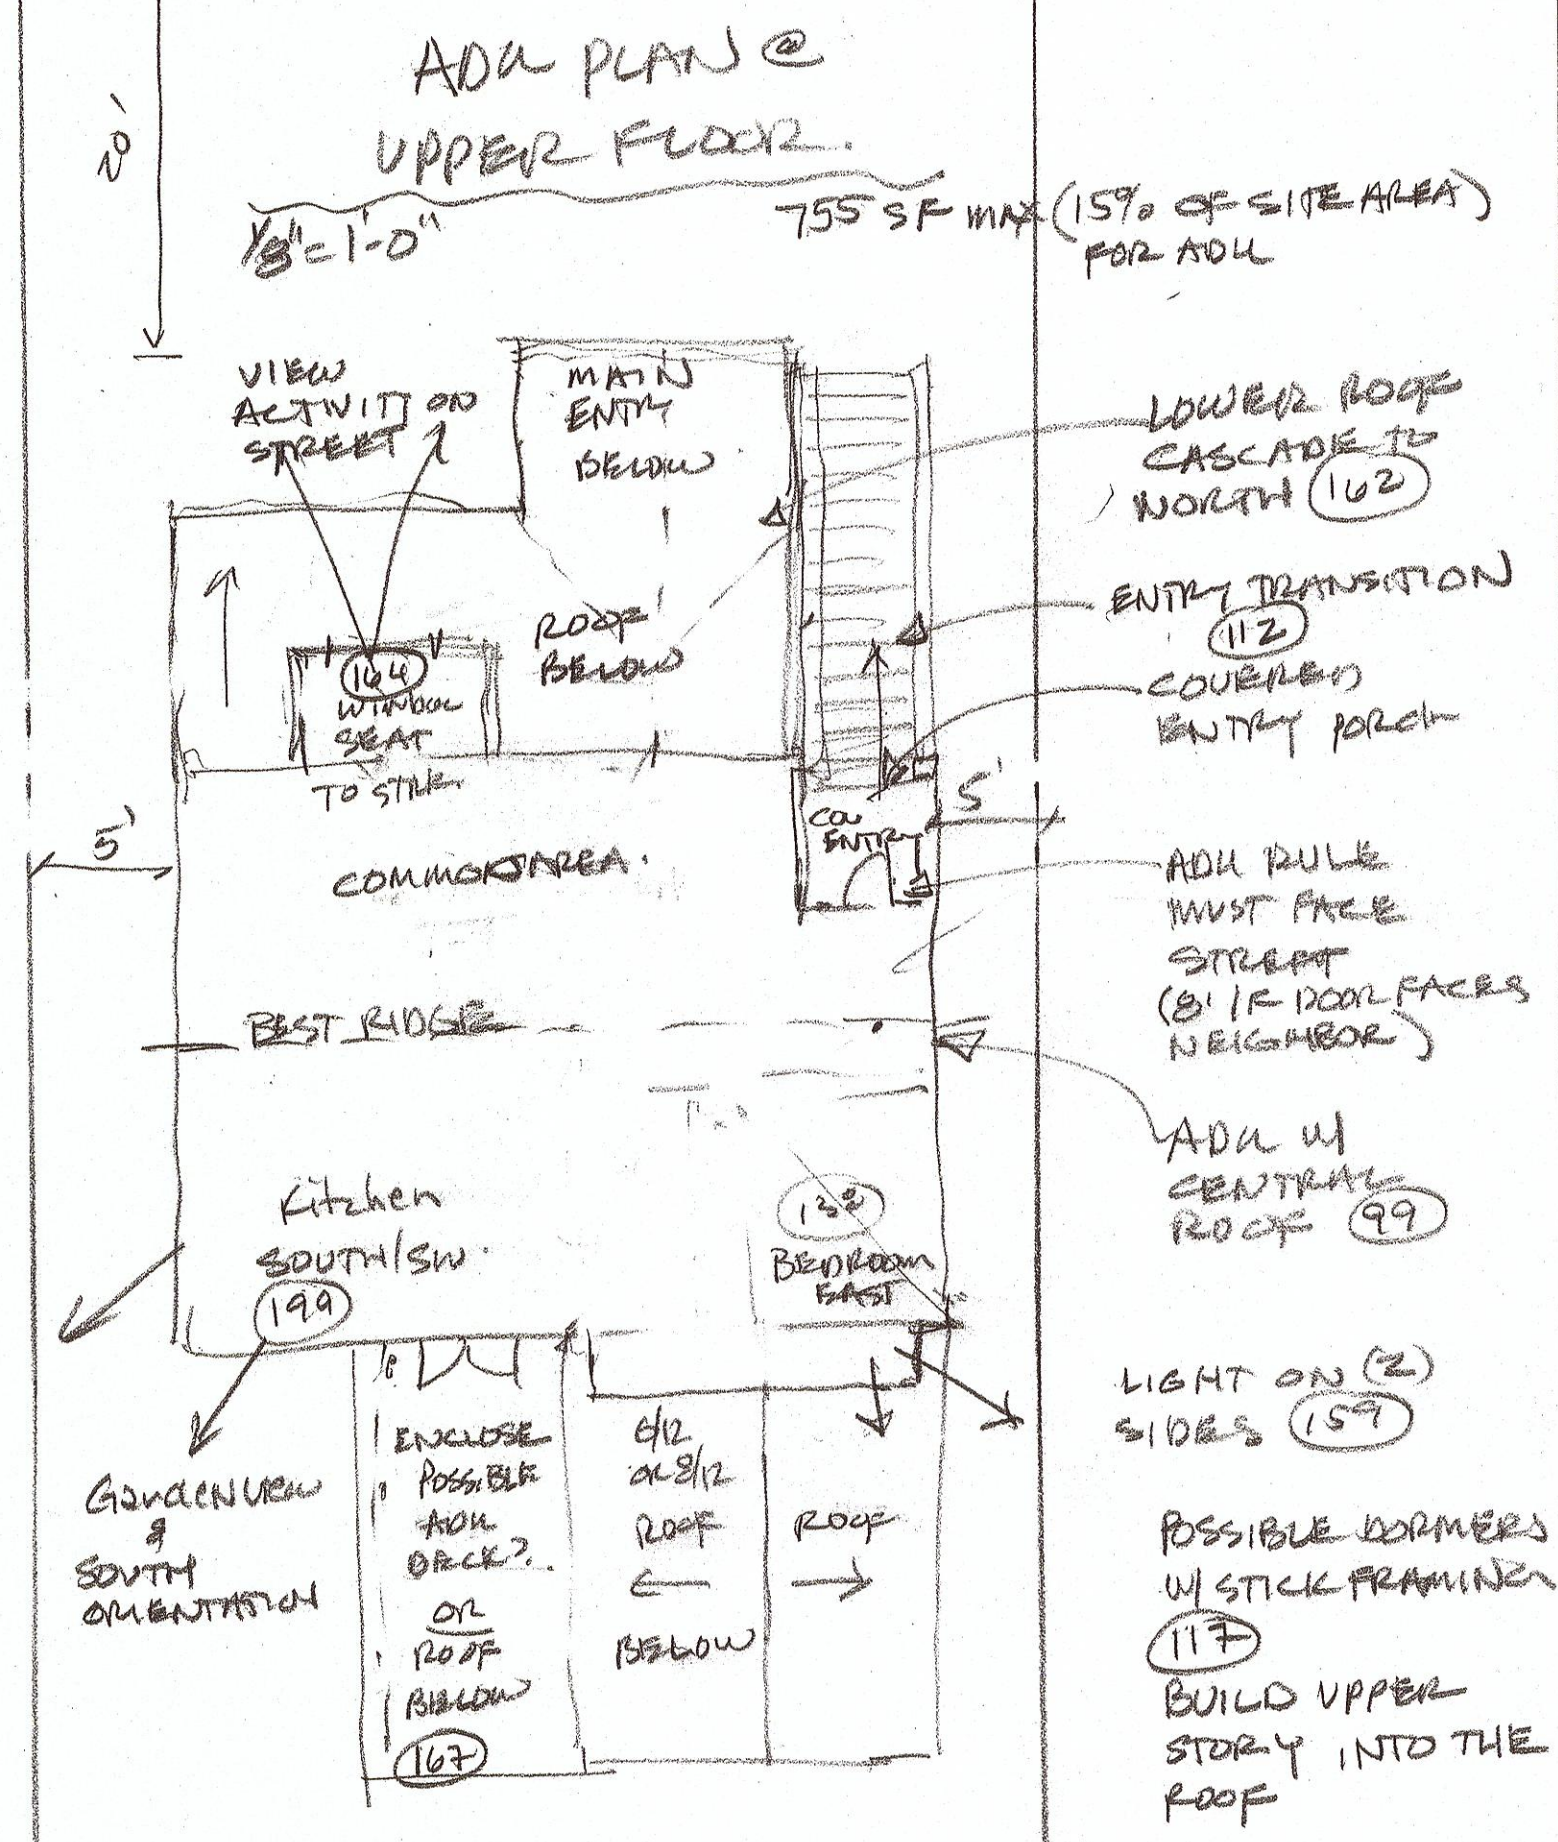 ADU PLAN @
UPPER FLOOR.
1/8" = 1'-0"
755 SF MAX (15% OF SITE AREA)
FOR ADU
20'
VIEW
ACTIVITY ON
STREET
MAIN
ENTRY
BELOW
LOWER ROOF
CASCADE TO
NORTH 162
ENTRY TRANSITION
112
COVERED
ENTRY PORCH
ROOF
BELOW
164
WINDOW
SEAT
TO STREET
5'
COV
ENTRY
5'
COMMON AREA.
ADU RULE
MUST FACE
STREET
(8' IF DOOR FACES
NEIGHBOR)
BEST RIDGE
ADU W/
CENTRAL
ROOF 99
Kitchen
SOUTH/SW.
199
138
BEDROOM
EAST
LIGHT ON (2)
SIDES 159
Garden view
&
SOUTH
ORIENTATION
ENCLOSE
POSSIBLE
ADU
DECK?
OR
ROOF
BELOW
167
6/12
OR 8/12
ROOF
BELOW
ROOF
POSSIBLE DORMERS
W/ STICK FRAMING
117
BUILD UPPER
STORY INTO THE
ROOF